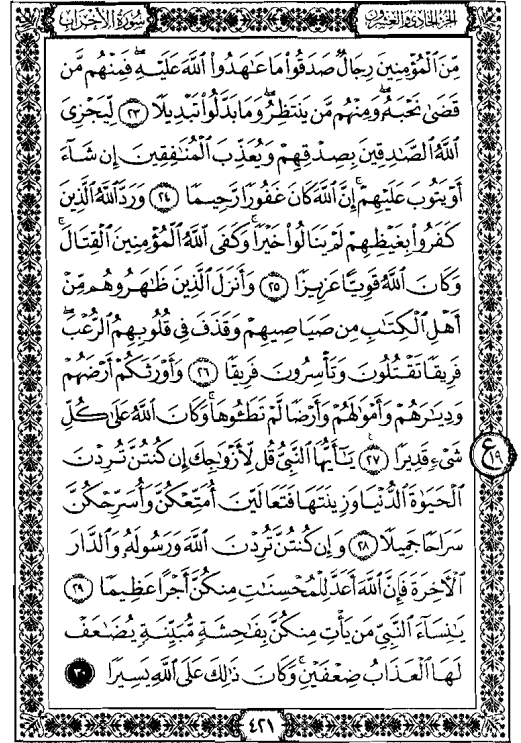 الجزء الحادي والعشرون
سورة الأحزاب
مِّنَ ٱلْمُؤْمِنِينَ رِجَالٌ صَدَقُوا۟ مَا عَـٰهَدُوا۟ ٱللَّهَ عَلَيْهِ ۖ فَمِنْهُم مَّن
قَضَىٰ نَحْبَهُۥ وَمِنْهُم مَّن يَنتَظِرُ ۖ وَمَا بَدَّلُوا۟ تَبْدِيلًا ٢٣ لِّيَجْزِىَ
ٱللَّهُ ٱلصَّـٰدِقِينَ بِصِدْقِهِمْ وَيُعَذِّبَ ٱلْمُنَـٰفِقِينَ إِن شَآءَ
أَوْ يَتُوبَ عَلَيْهِمْ ۚ إِنَّ ٱللَّهَ كَانَ غَفُورًا رَّحِيمًا ٢٤ وَرَدَّ ٱللَّهُ ٱلَّذِينَ
كَفَرُوا۟ بِغَيْظِهِمْ لَمْ يَنَالُوا۟ خَيْرًا ۚ وَكَفَى ٱللَّهُ ٱلْمُؤْمِنِينَ ٱلْقِتَالَ ۚ
وَكَانَ ٱللَّهُ قَوِيًّا عَزِيزًا ٢٥ وَأَنزَلَ ٱلَّذِينَ ظَـٰهَرُوهُم مِّنْ
أَهْلِ ٱلْكِتَـٰبِ مِن صَيَاصِيهِمْ وَقَذَفَ فِى قُلُوبِهِمُ ٱلرُّعْبَ
فَرِيقًا تَقْتُلُونَ وَتَأْسِرُونَ فَرِيقًا ٢٦ وَأَوْرَثَكُمْ أَرْضَهُمْ
وَدِيَـٰرَهُمْ وَأَمْوَٰلَهُمْ وَأَرْضًا لَّمْ تَطَـُٔوهَا ۚ وَكَانَ ٱللَّهُ عَلَىٰ كُلِّ
شَىْءٍ قَدِيرًا ٢٧ يَـٰٓأَيُّهَا ٱلنَّبِىُّ قُل لِّأَزْوَٰجِكَ إِن كُنتُنَّ تُرِدْنَ
ع ١٩
ٱلْحَيَوٰةَ ٱلدُّنْيَا وَزِينَتَهَا فَتَعَالَيْنَ أُمَتِّعْكُنَّ وَأُسَرِّحْكُنَّ
سَرَاحًا جَمِيلًا ٢٨ وَإِن كُنتُنَّ تُرِدْنَ ٱللَّهَ وَرَسُولَهُۥ وَٱلدَّارَ
ٱلْـَٔاخِرَةَ فَإِنَّ ٱللَّهَ أَعَدَّ لِلْمُحْسِنَـٰتِ مِنكُنَّ أَجْرًا عَظِيمًا ٢٩
يَـٰنِسَآءَ ٱلنَّبِىِّ مَن يَأْتِ مِنكُنَّ بِفَـٰحِشَةٍ مُّبَيِّنَةٍ يُضَـٰعَفْ
لَهَا ٱلْعَذَابُ ضِعْفَيْنِ ۚ وَكَانَ ذَٰلِكَ عَلَى ٱللَّهِ يَسِيرًا ٣٠
٤٢١